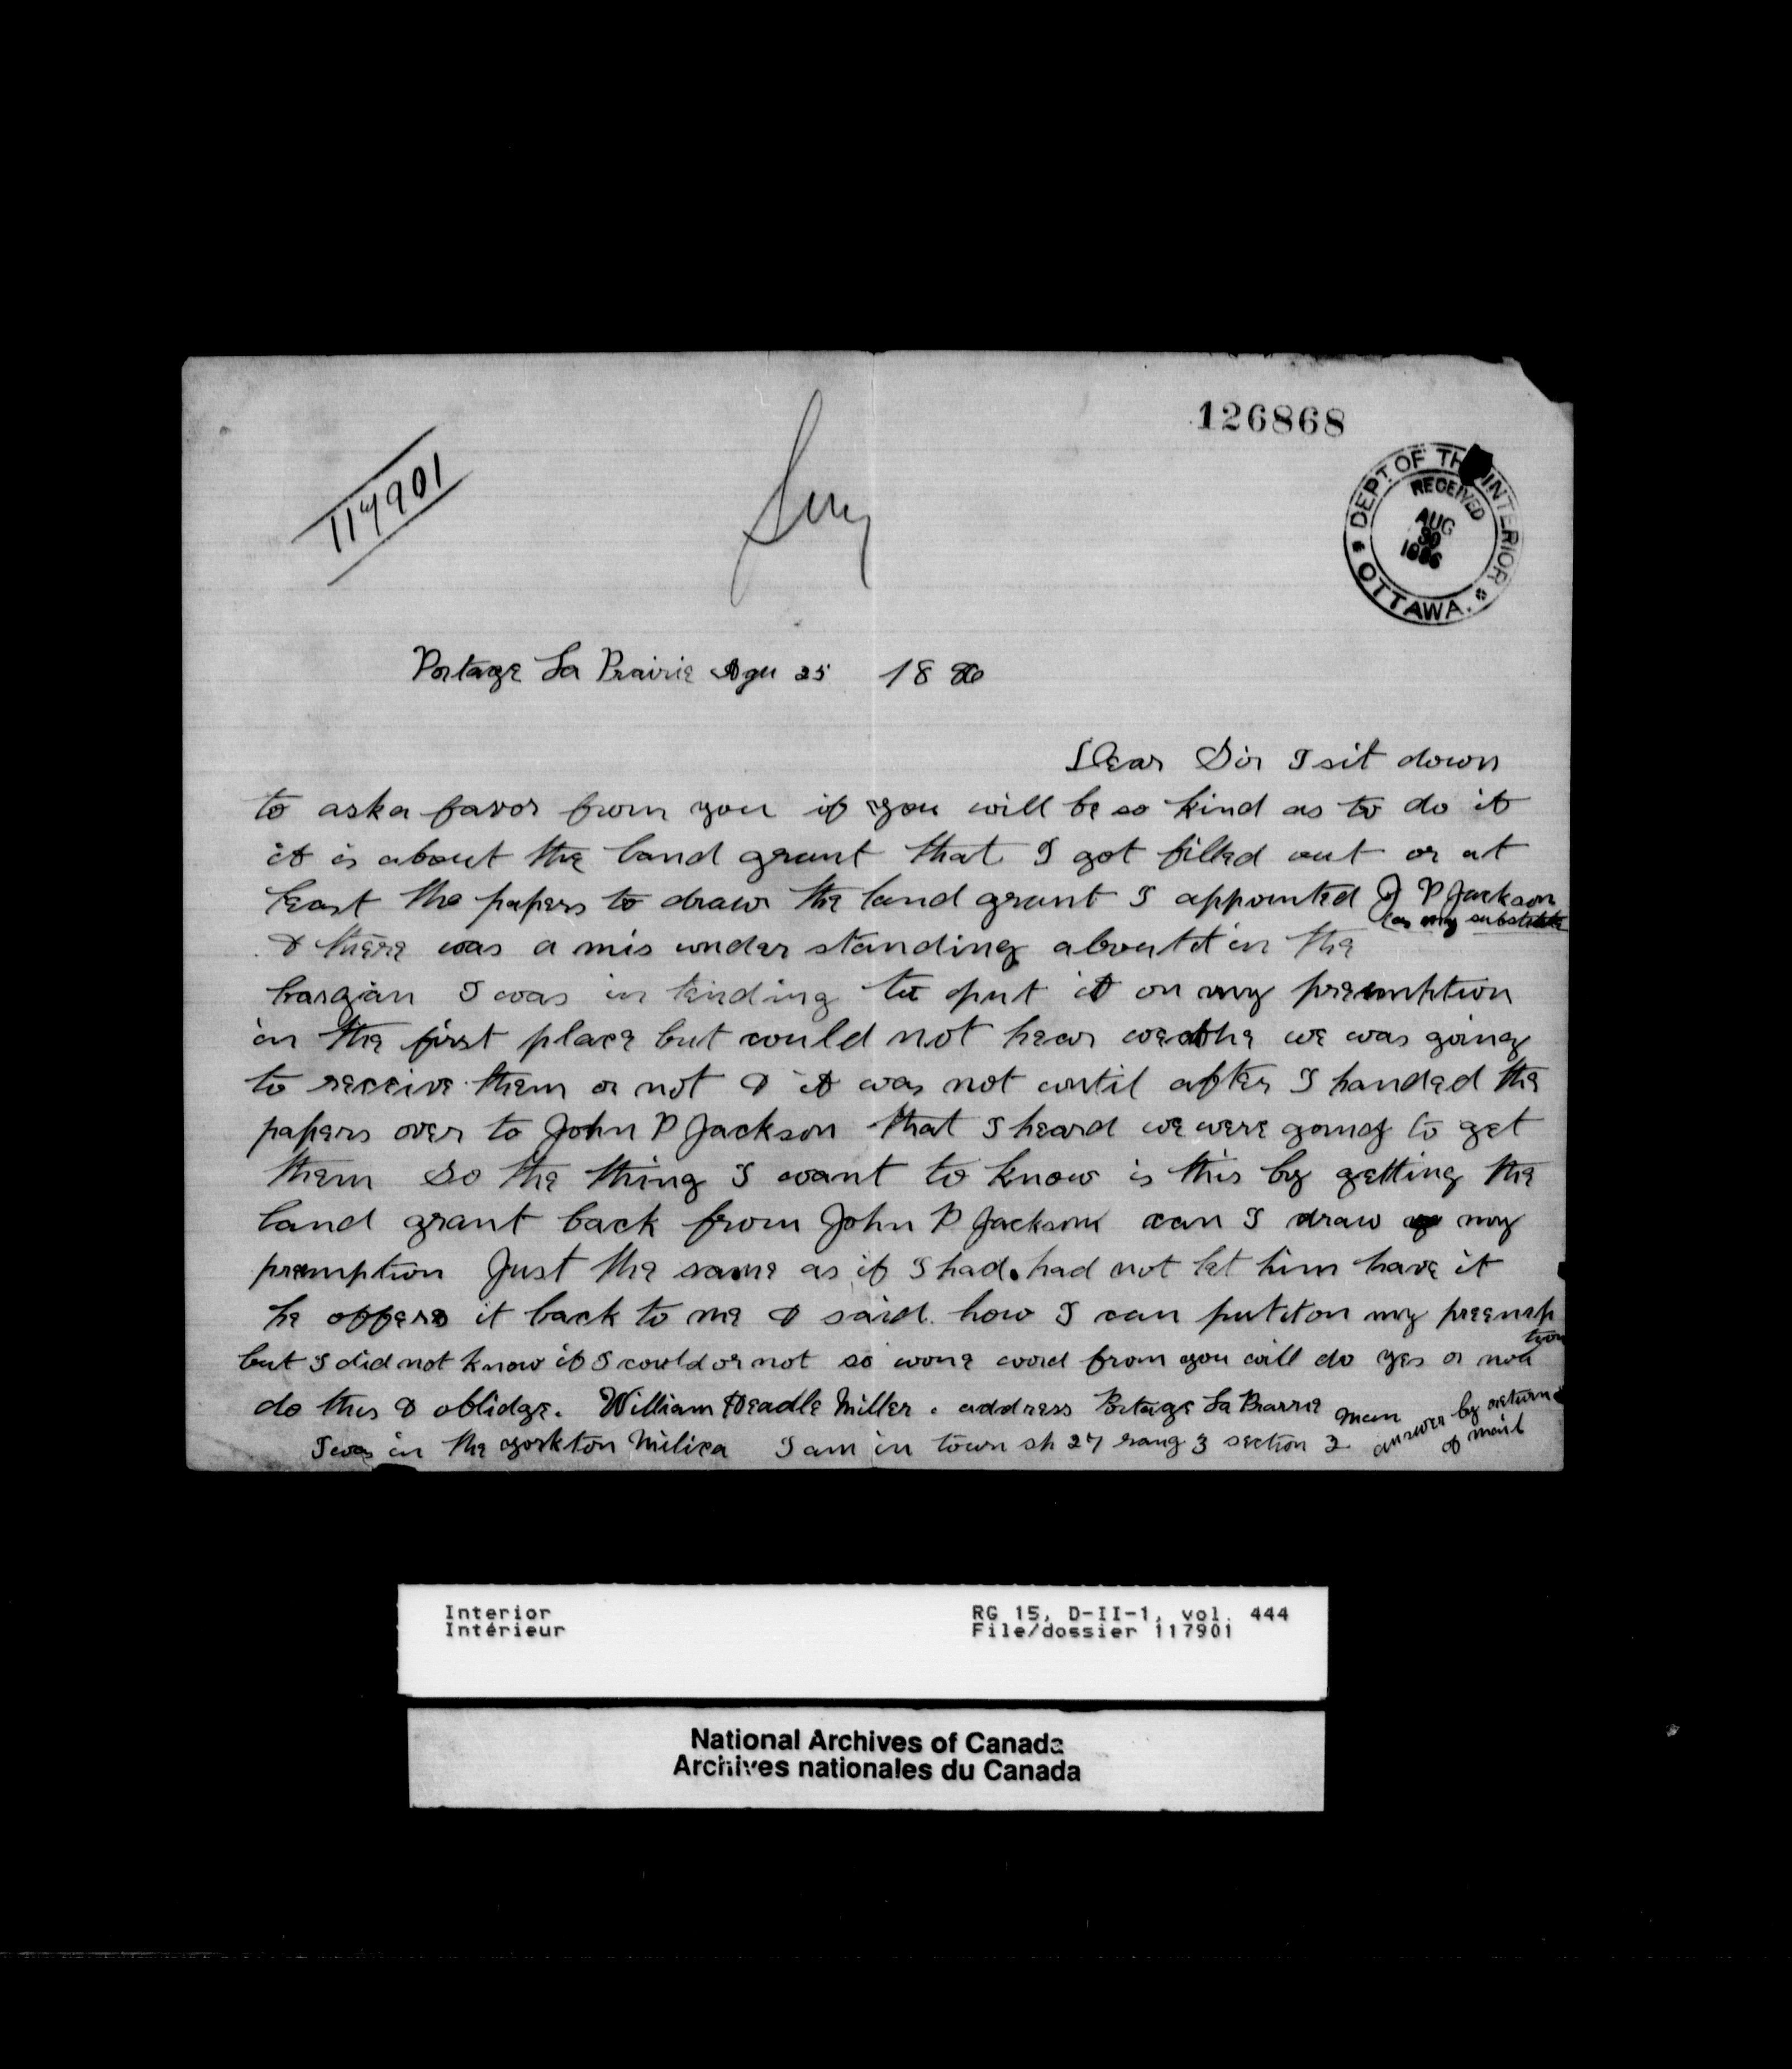 126868
117901
DEPT. OF THE INTERIOR
RECEIVED
AUG
30
1886
OTTAWA.
Portage La Prairie Agu 25 1886
Dear Sir I sit down
to ask a favor from you if you will be so kind as to do it
it is about the land grant that I got filled out or at
least the papers to draw the land grant I appointed J P Jackson
as my substitute
& there was a mis under standing about it in the
bargian I was in tending to put it on my premption
in the first place but could not hear weathe we was going
to receive them or not & it was not until after I handed the
papers over to John P Jackson that I heard we were going to get
them so the thing I want to know is this by getting the
land grant back from John P Jackson can I draw my
premption Just the same as if I had had not let him have it
he offers it back to me & said how I can put it on my preemp
tion
but I did not know if I could or not so wone word from you will do yes or nou
do this & oblidge. William Headle Miller. address Portage La Prarrie Man
answer by return
of mail
I was in the yorkton Milica I am in town sh 27 rang 3 section 2
Interior
Intérieur
RG 15, D-II-1, vol. 444
File/dossier 117901
National Archives of Canada
Archives nationales du Canada